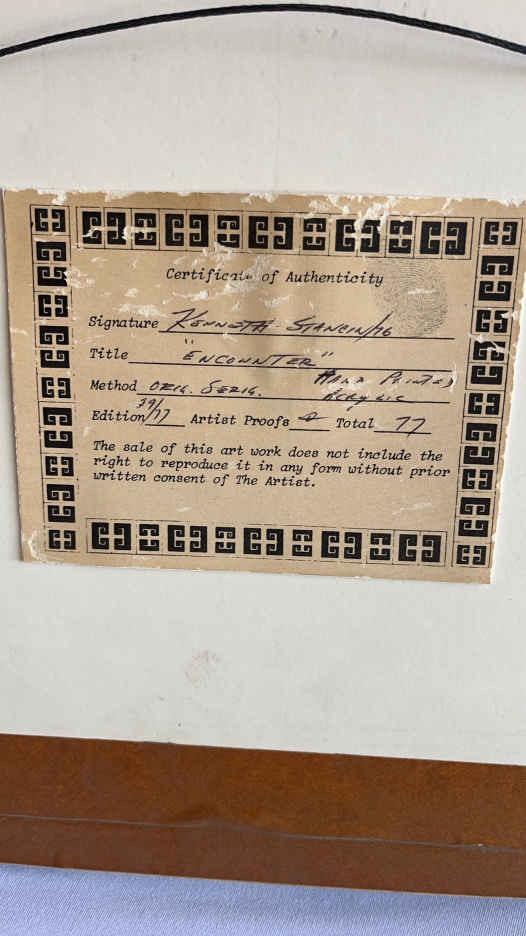 Certificate of Authenticity
Signature Kenneth Stancin/76
Title "ENCOUNTER"
Method ORIG. SERIG. HAND PRINTED ACRYLIC
Edition 39/77 Artist Proofs Total 77
The sale of this art work does not include the
right to reproduce it in any form without prior
written consent of The Artist.